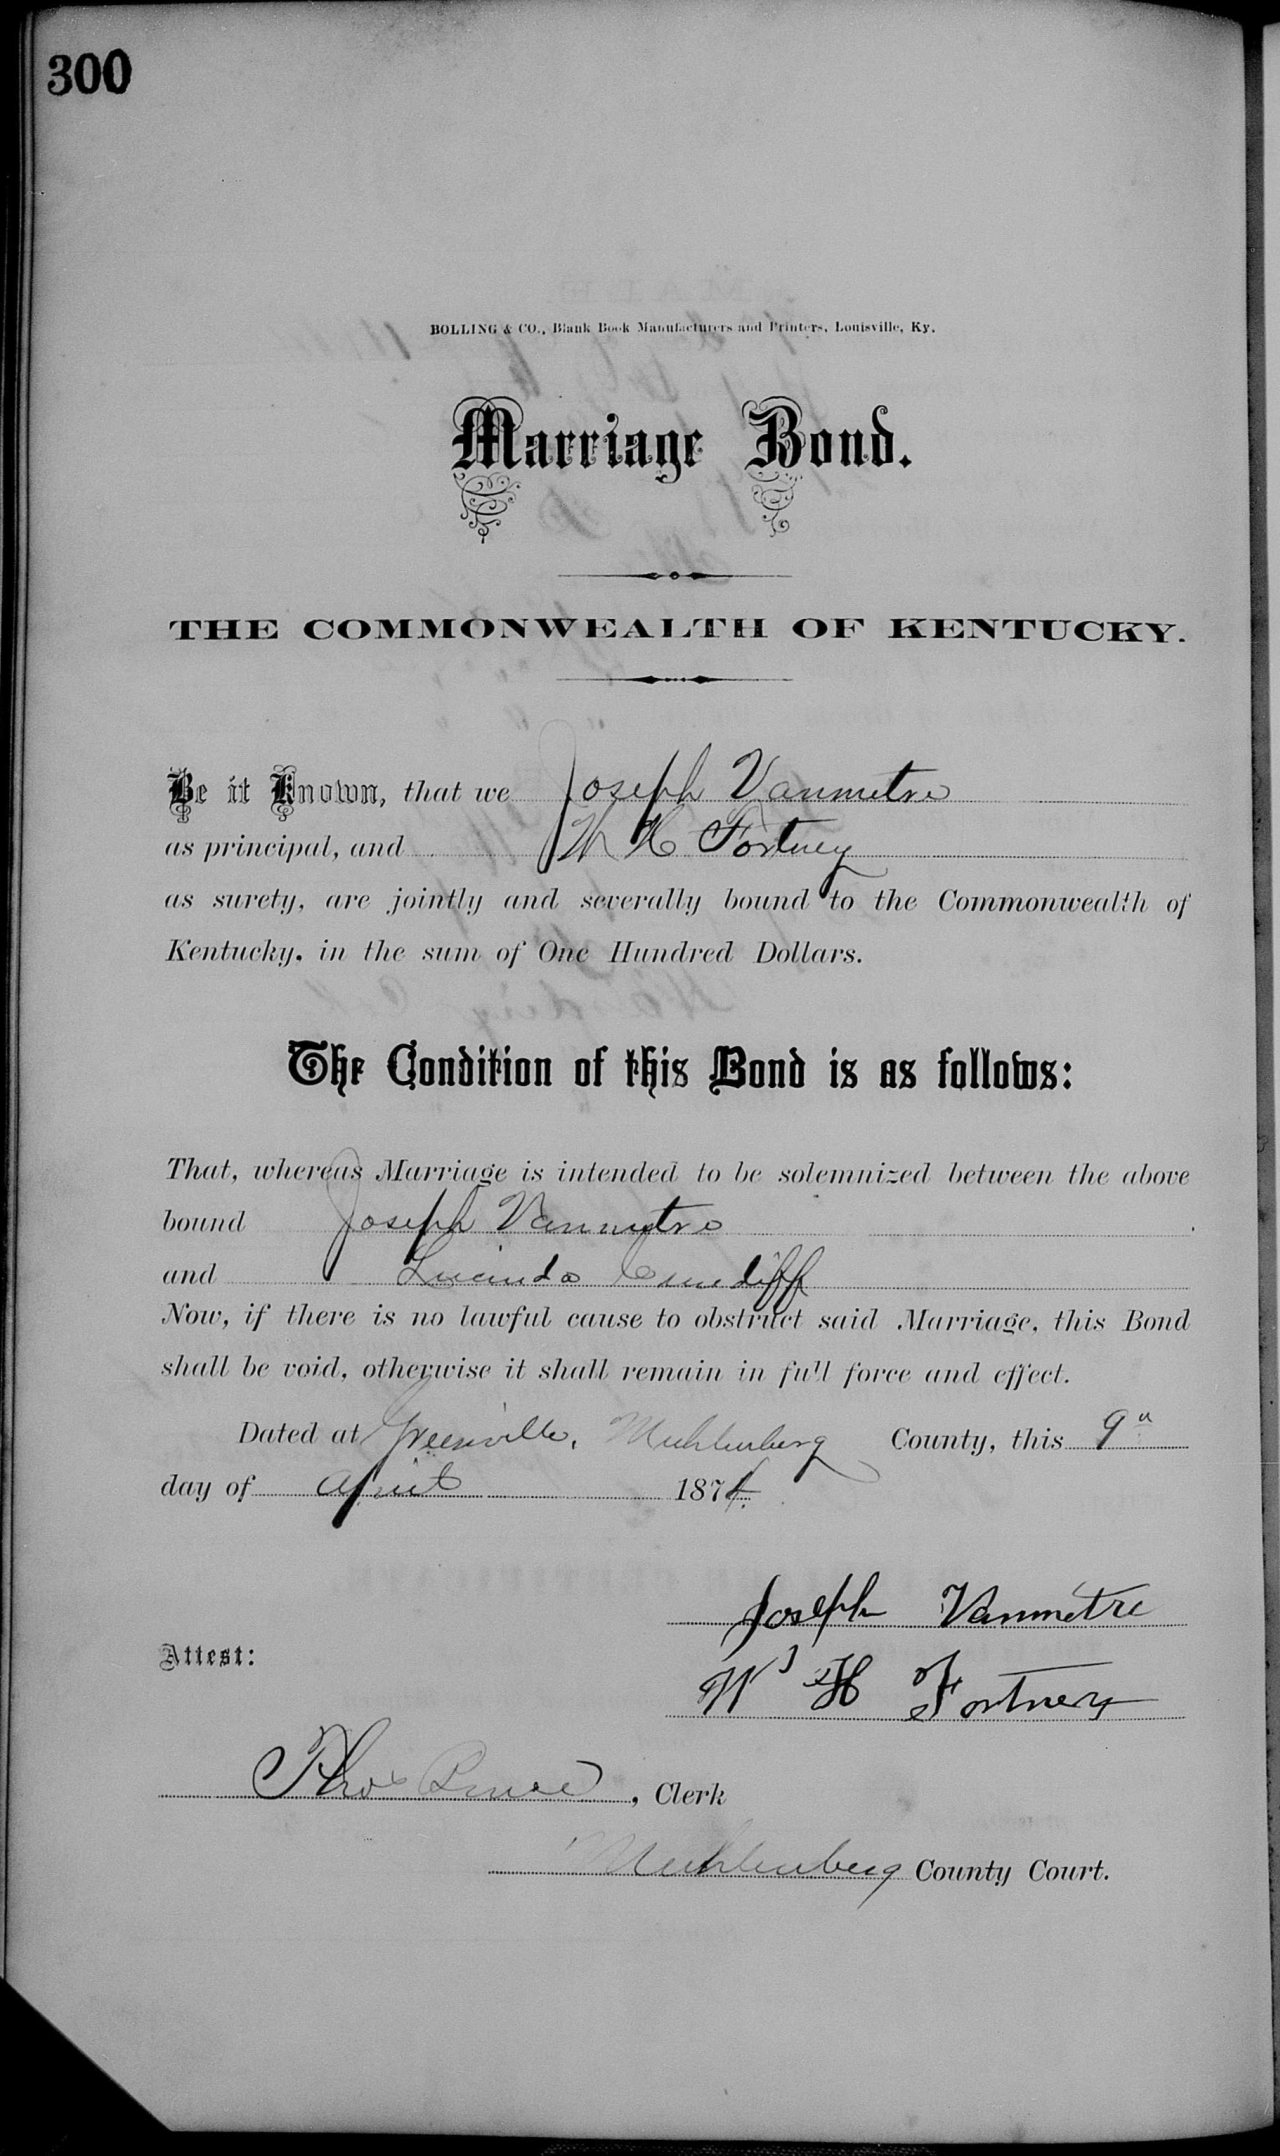 300
BOLLING & CO., Blank Book Manufacturers and Printers, Louisville, Ky.
Marriage Bond.
THE COMMONWEALTH OF KENTUCKY.
Be it Known, that we Joseph Vanmetre
as principal, and W H Fortney
as surety, are jointly and severally bound to the Commonwealth of
Kentucky, in the sum of One Hundred Dollars.
The Condition of this Bond is as follows:
That, whereas Marriage is intended to be solemnized between the above
bound Joseph Vanmetre
and Lucinda Cundiff
Now, if there is no lawful cause to obstruct said Marriage, this Bond
shall be void, otherwise it shall remain in full force and effect.
Dated at Greenville, Muhlenberg County, this 9"
day of April 1874.
Joseph Vanmetre
Attest:
W H Fortney
Thos Bruce, Clerk
Muhlenberg County Court.